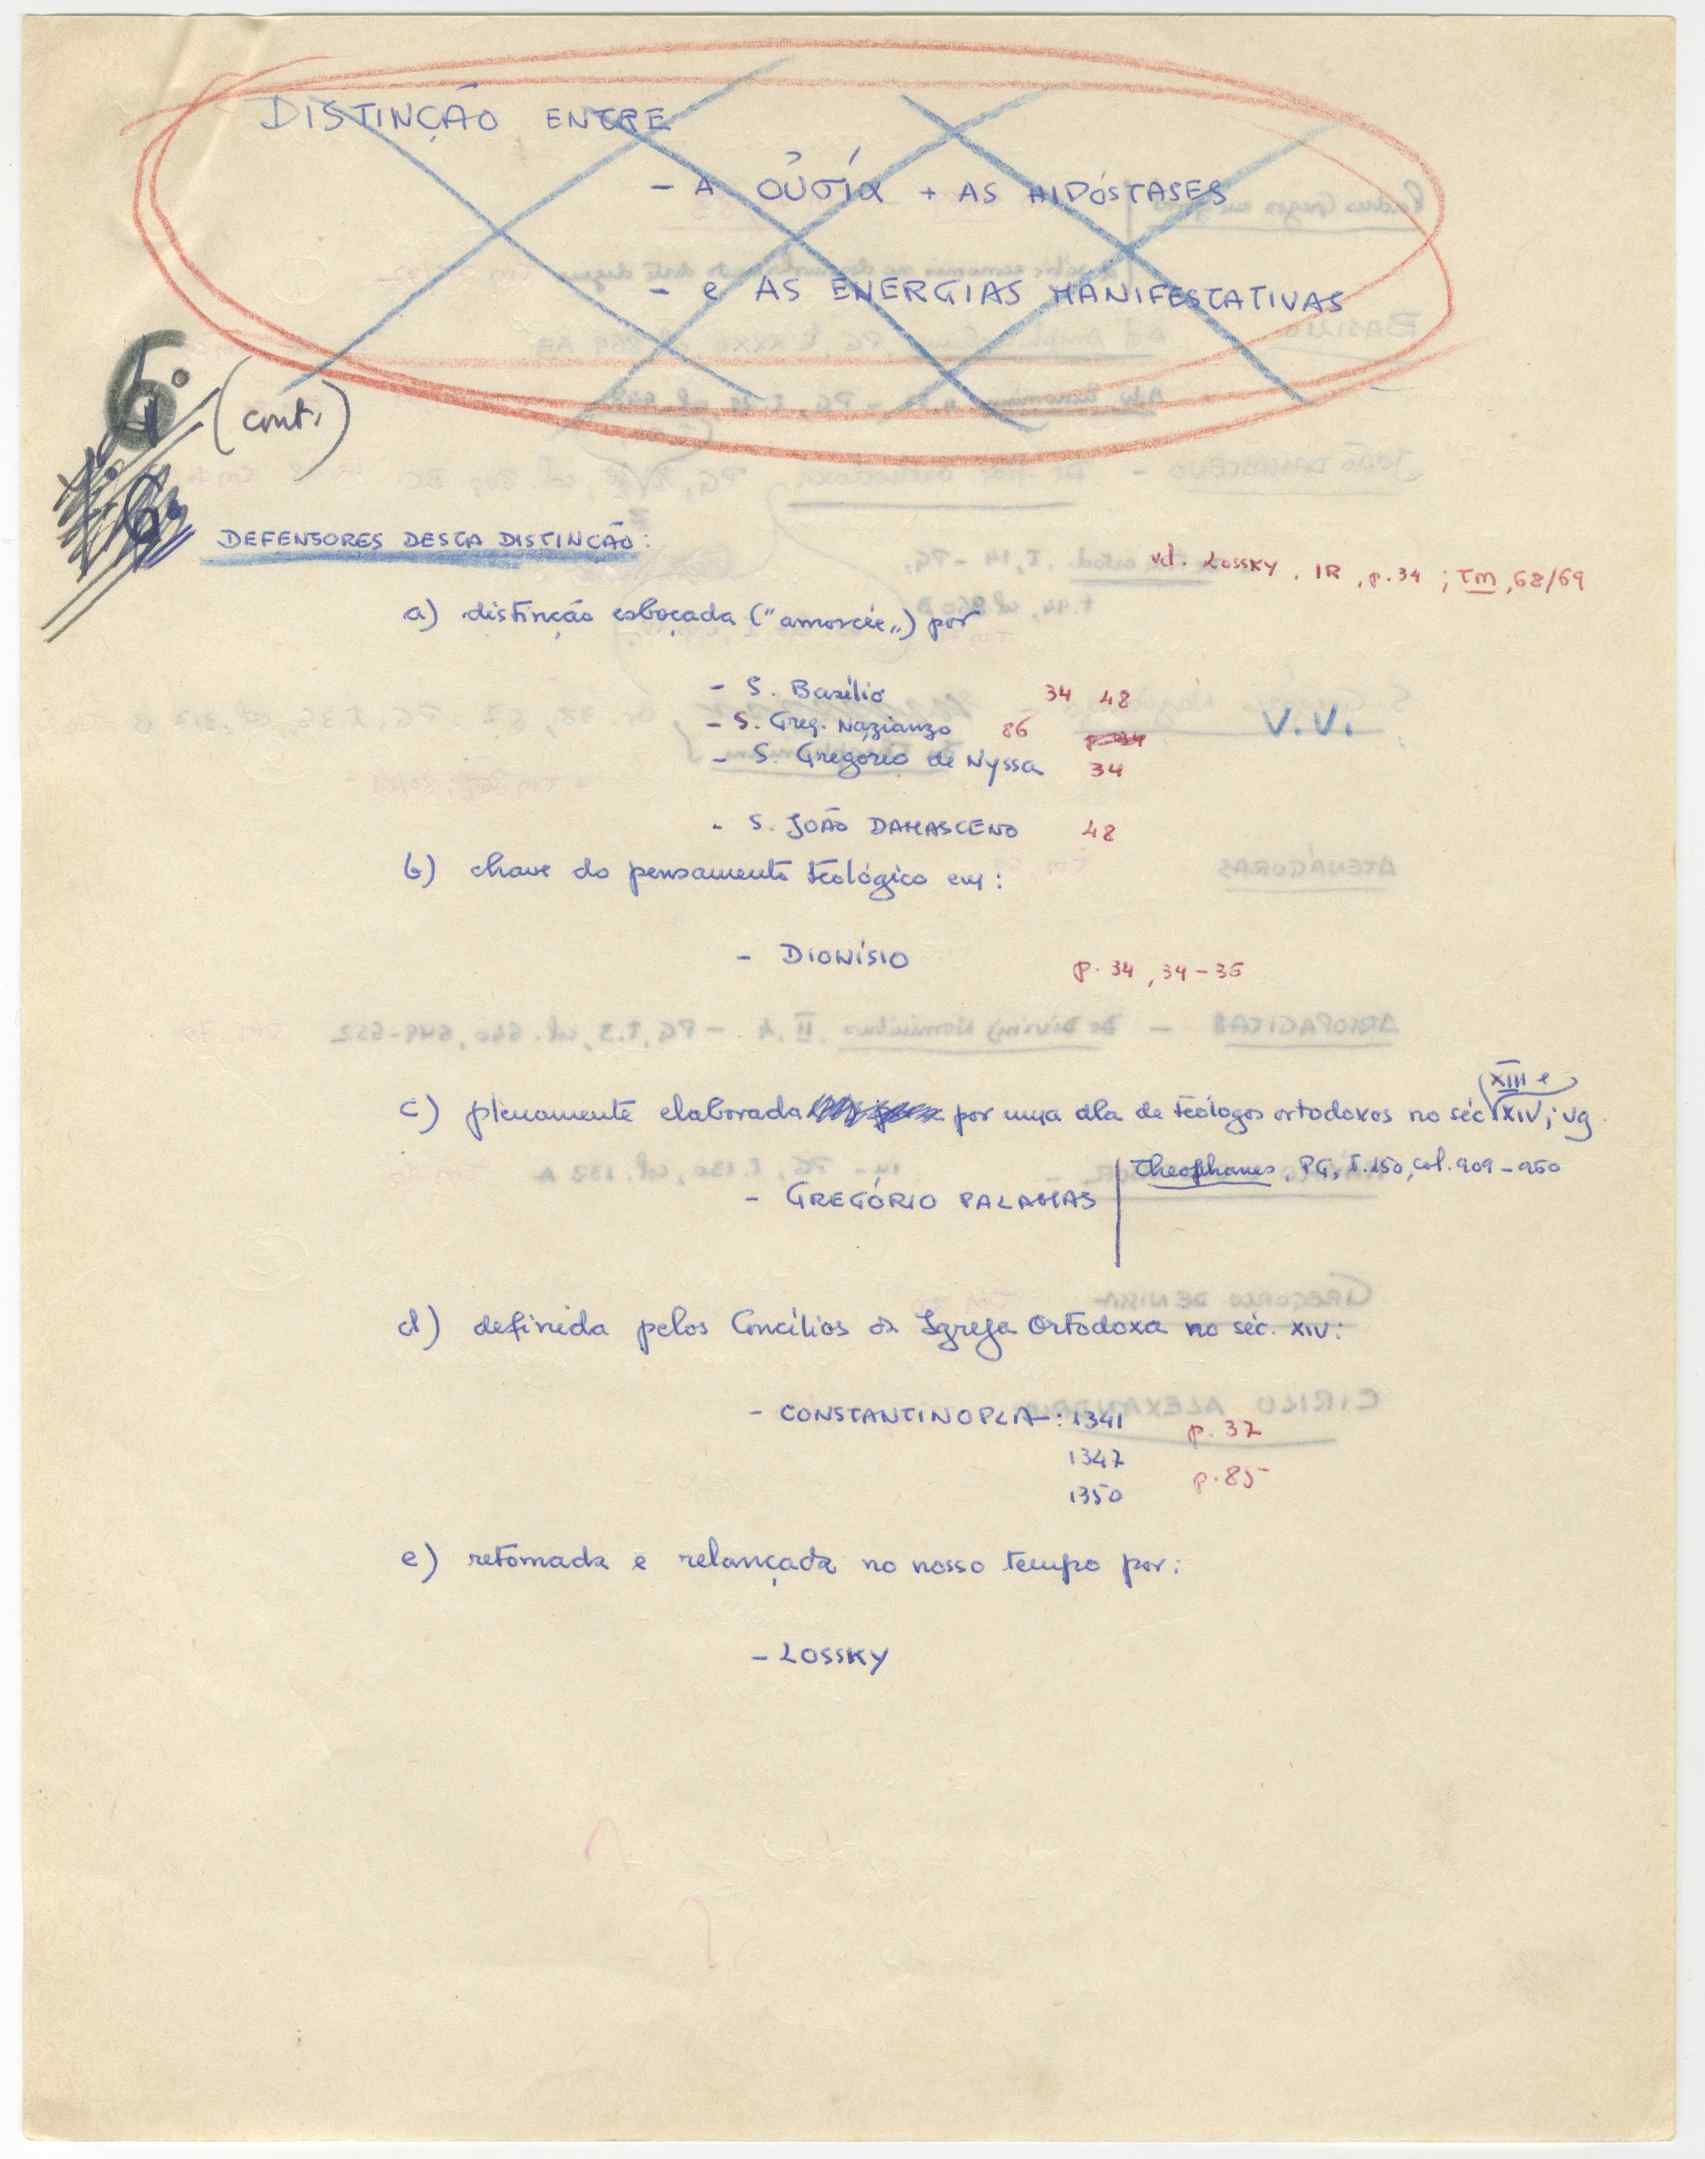 DISTINÇÃO ENTRE
- A οὐσία + AS HIPÓSTASES
- e AS ENERGIAS MANIFESTATIVAS
6.º (cont.)
6.
DEFENSORES DESTA DISTINÇÃO:
vd. LOSSKY, IR, p.34; TM, 68/69
a) distinção esboçada ("amorcée") por
- S. Basílio 34 48
- S. Greg. Nazianzo 86
V.V.
- S. Gregório de Nyssa 34
- S. JOÃO DAMASCENO 48
b) chave do pensamento teológico em:
- DIONÍSIO p. 34, 34-35
XIII e
c) plenamente elaborada por uma ala de teólogos ortodoxos no séc XIV; vg.
Theophanes, PG, T.150, col. 909-960
- GREGÓRIO PALAMAS
d) definida pelos Concílios da Igreja Ortodoxa no séc. XIV:
- CONSTANTINOPLA: 1341 p. 37
1347
p. 85
1350
e) retomada e relançada no nosso tempo por:
- LOSSKY